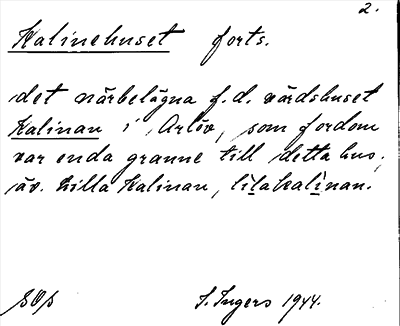 2.
Kalinehuset forts.
det närbelägna f.d. värdshuset
Kalinan i Arlöv, som fordom
var enda granne till detta hus;
äv. Lilla Kalinan, lilakalinan.
SOS I. Ingers 1944.